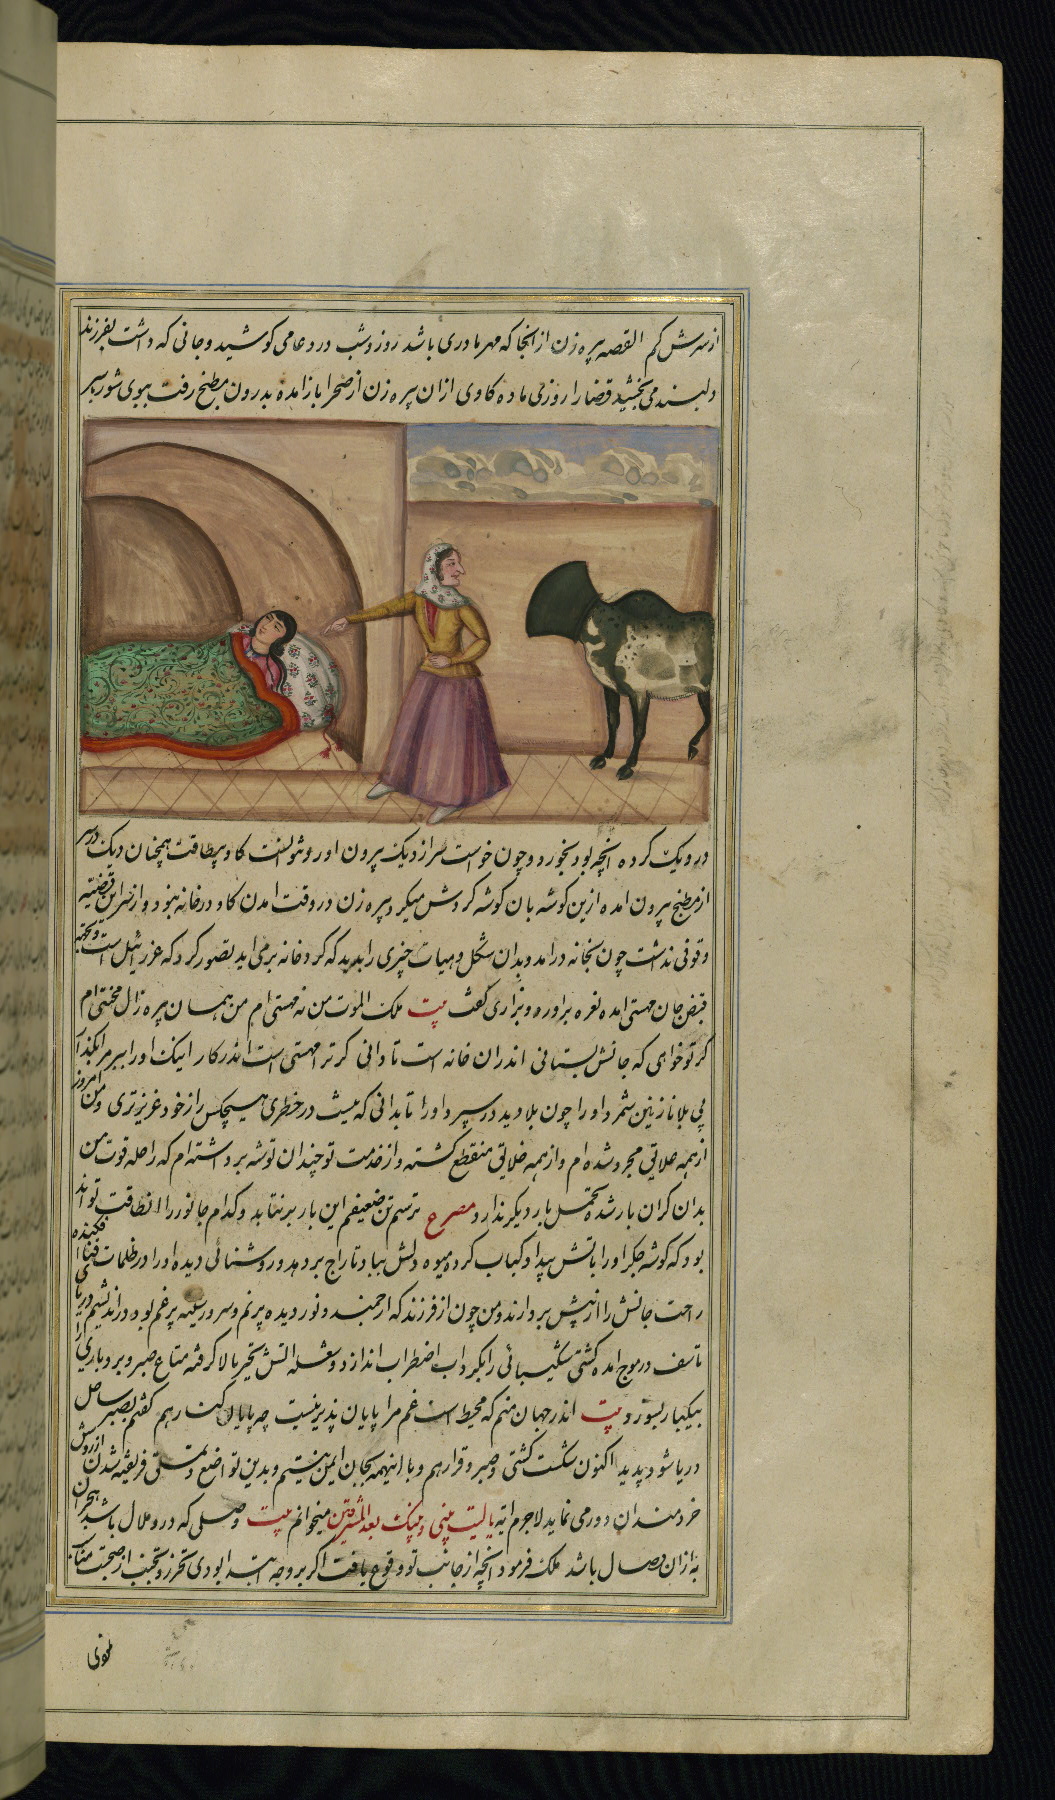 از سرش کم القصه پیره زن از انجا که مهر مادری باشد روز و شب در دعا می کوشید و جانی که داشت بفرزند
دلبند می بخشید قضا را روزی ماده کاوی ازان پیره زن از صحرا باز امده بدرون مطبخ رفت ببوی شوربا سر
در دیک کرده انچه بود بخورد و چون خواست سر از دیک بیرون اورد نتوانست کاو بیطاقت همچنان دیک در سر
از مطبخ بیرون امده ازین کوشه بان کوشه کردش میکرد پیره زن در وقت امدن کاو در خانه نبود و از سر این قضیه
وقوفی نداشت چون بخانه درامد و بدان شکل و هیات چیزی را بدید که کرد خانه برمی اید تصور کرد که عزرائیل است و بجهة
قبض جان مهستی امده نعره براورده و بزاری کفت بیت ملک الموت من نه مهستی ام من همان پیره زال محنتی ام
کر تو خواهی که جانش بستانی اندران خانه است تا دانی کر ترا مهستی است اندر کار اینک او را ببر مرا بگذار
بی بلا نازنین شمرد او را چون بلا دید در سپرد او را تا بدانی که نیست در خطری هیچکس را ز خود عزیزتری و من امروز
از همه علایق مجرد شده ام و از همه خلایق منقطع کشته و از خدمت تو چندان توشه برداشته ام که راحله قوت من
بدان کران بار شده تحمل بار دیکر ندارد مصرع ترسم تن ضعیفم این بار برنتابد و کدام جانور را ان طاقت تواند
بود که کوشه جکر او را باتش بیداد کباب کرده میوه دلش بباد تاراج بردهد و روشنائی دیده او را در ظلمات فنا افکنده
راحت جانش را از پیش بردارند و من چون از فرزند که ارجمند و نور دیده پرنم و سرور سینه پرغم بود در اندیشم دریای
تاسف در موج امده کشتی شکیبائی را بکرداب اضطراب اندازد و شعله اتش تحیر بالا کرفته متاع صبر و بردباری را
بیکبار بسوزد بیت اندر جهان منم که محیط است غم مرا پایان پذیر نیست چه پایان کنار هم کفتم بصبر ساحل
دریا شود پدید اکنون شکست کشتی و صبر و قرار هم و با اینهمه بجان ایمن نیستم و بدین تواضع و تملق فریفته شدن از روش
خردمندان دور می نماید لاجرم ایه یا لیت بینی و بینک بعد المشرقین میخوانم بیت وصلی که درو ملال باشد هجران
به ازان وصال باشد ملک فرمود انچه از جانب تو وقوع یافت اکر بر وجه ابتدا بودی تحرز و تجنب از صحبت مناسب
نمودی